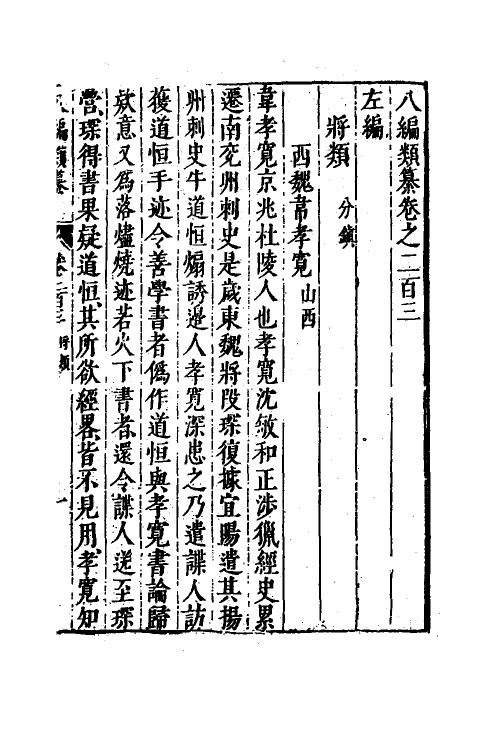 八編類纂卷之二百三
左編
將類 分鎮
西魏韋孝寬 山西
韋孝寬京兆杜陵人也孝寬沈敏和正涉獵經史累
遷南兖州刺史是歲東魏將段琛復據宜陽遣其揚
州刺史牛道恒煽誘邊人孝寬深患之乃遣諜人訪
獲道恒手迹令善學書者偽作道恒與孝寬書論歸
欵意又為落燼燒迹若火下書者還令諜人送至琛
營琛得書果疑道恒其所欲經畧皆不見用孝寬知
八編類纂 卷二百三 將類 一